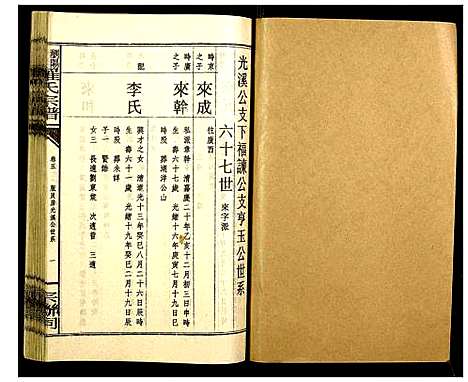 光溪公支下福諫公支亨玉公世系
六十七世 來字派
時京之子
來成
往廣西
時廣之子
來幹
私派章幹 清嘉慶二十年乙亥十二月初三日申時
生 壽六十七歲 光緒十六年庚寅七月十九日巳
時歿 葬湖洋公山
配
李氏
英才之女 清道光十三年癸巳八月二十六日辰時
生 壽六十一歲 光緒十九年癸巳二月十九日辰
時歿 葬未詳
子一 賢
女三 長適劉東棠 次適曾 三適
羅氏宗譜
卷三
光溪公世系
一